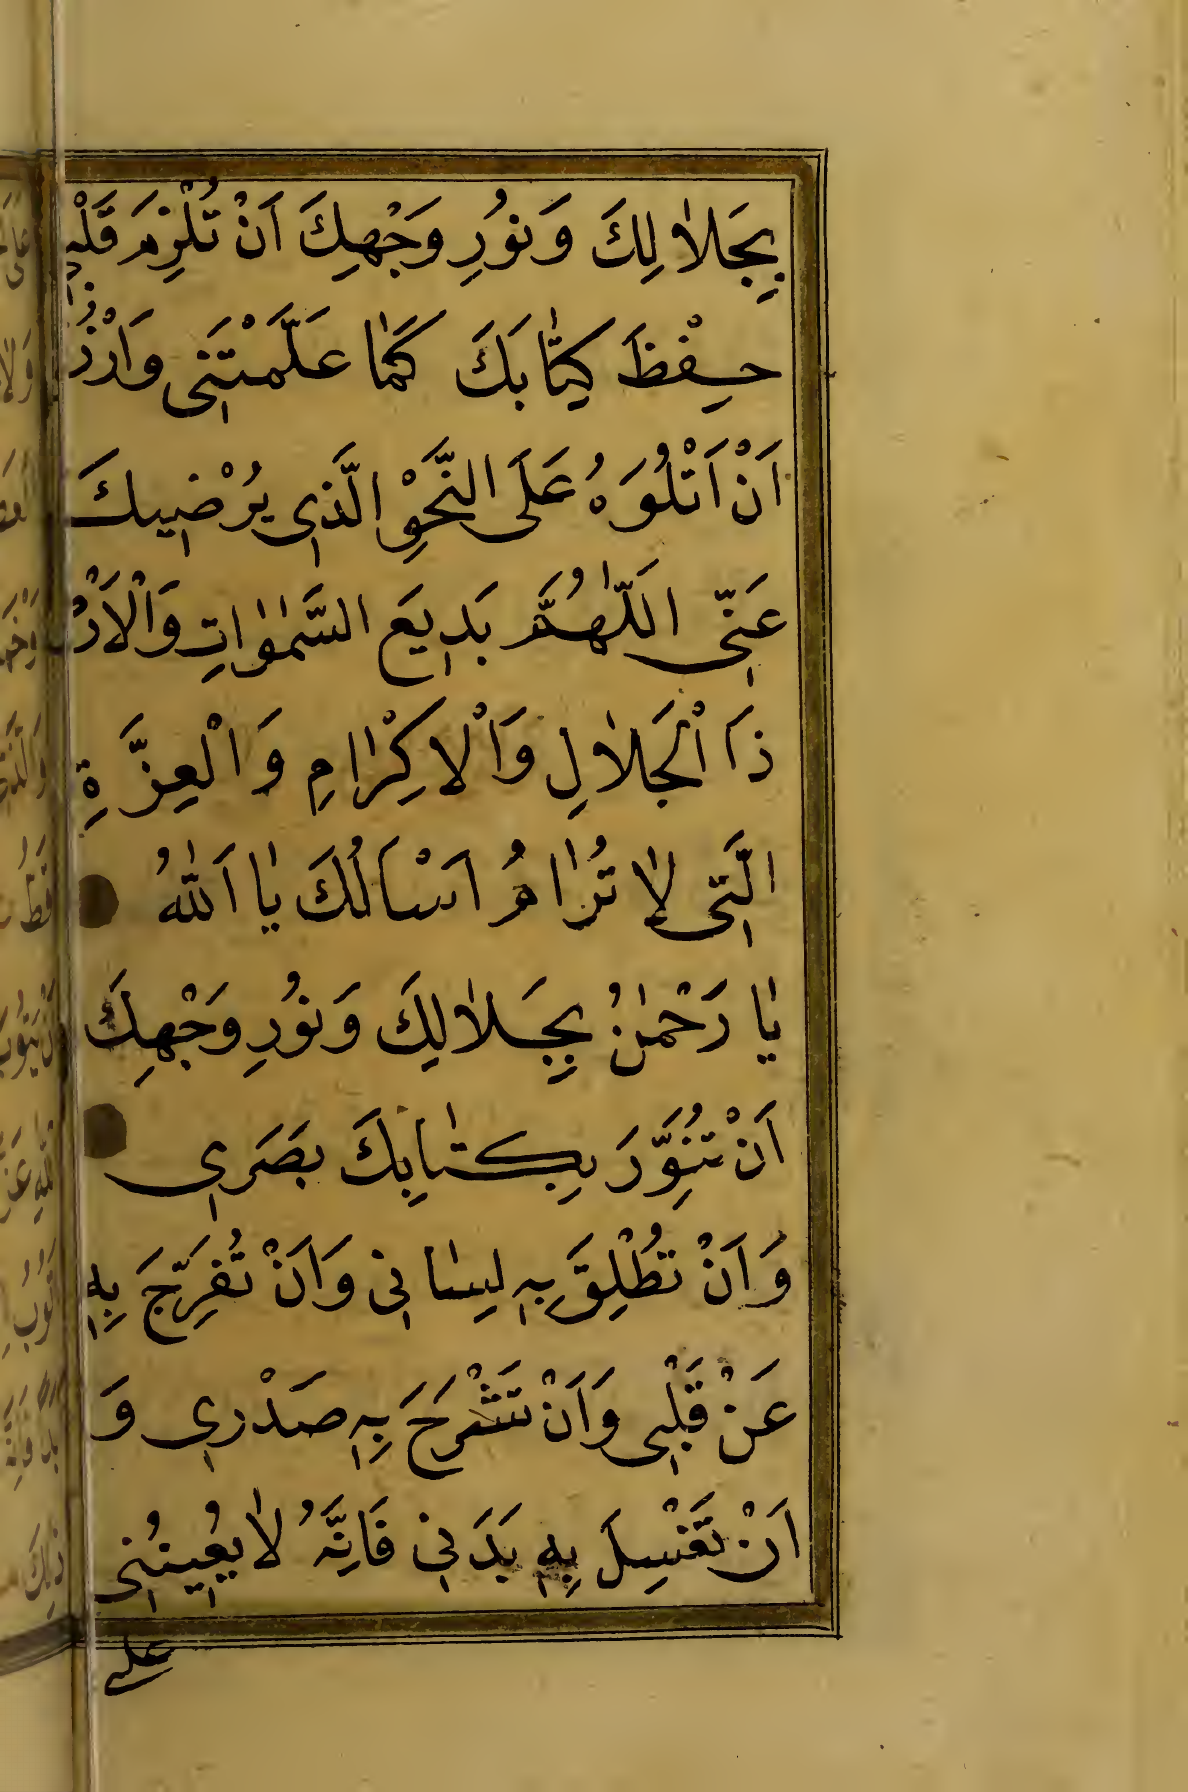 بِجَلاٰلِكَ وَنوُرِ وَجْهِكَ اَنْ تُلْزِمَ قَلْبى
حِفْظَ كِتٰابَكَ كَمٰا عَلَّمْتَنى وَارْزُ
اَنْ اَتْلُوَهُ عَلَى النَّحْوِ الَّذى يُرْضيكَ
عَنّى اَللّٰهُمَّ بَديعَ السَّمٰوٰاتِ وَالْاَرْ
ذَا اْلجَلاٰلِ وَاْلاِكْرٰامِ وَالْعِزَّةِ
الَّتى لاٰ تُرٰامُ اَسْاَلُكَ يٰا اَللّٰهُ
يٰا رَحْمٰنُ بِجَلاٰلِكَ وَنوُرِ وَجْهِكَ
اَنْ تُنَوِّرَ بِكِتٰابِكَ بَصَرى
وَاَنْ تُطْلِقَ بِهِ لِسٰانى وَاَنْ تُفَرِّجَ بِهِ
عَنْ قَلْبى وَاَنْ تَشْرَحَ بِهِ صَدْرى وَ
اَنْ تَغْسِلَ بِهِ بَدَنى فَاِنَّهُ لاٰ يُعينُنى
على